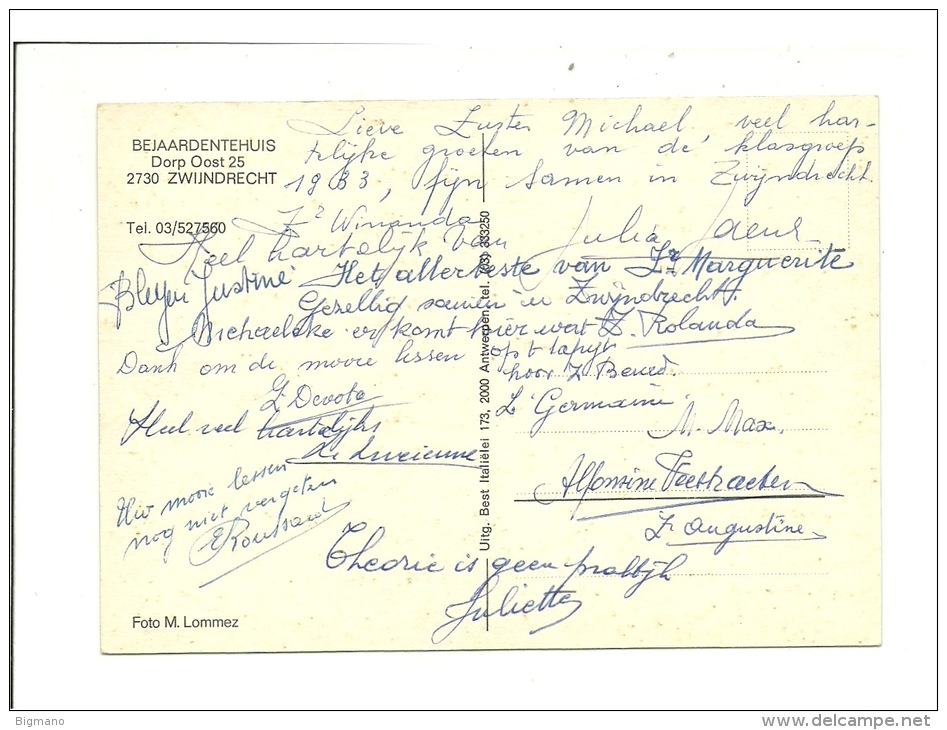 BEJAARDENTEHUIS
Dorp Oost 25
2730 ZWIJNDRECHT
Tel. 03/527560
Lieve Zuster Michael, veel har-
telijke groeten van de klasgroep
1933, fijn samen in Zwijndrecht
Zr Winanda
Heel hartelijk van Julia
Justine Het allerbeste van Zr Marguerite
Gezellig samen in Zwijndrecht.
er komt hier wat Z. Rolanda
Dank om de mooie lessen op 't tapijt
hoor Z Bened.
Z Devota
Z Germaine
Heel veel hartelijks
M. Max.
Zr Lucienne
Uw mooie lessen
nog niet vergeten
Alfonsine
Zr Augustine
Theorie is geen praktijk
Juliette
Uitg. Best Italiëlei 173, 2000 Antwerpen, tel. (03) 333250
Foto M. Lommez
Bigmano
www.delcampe.net